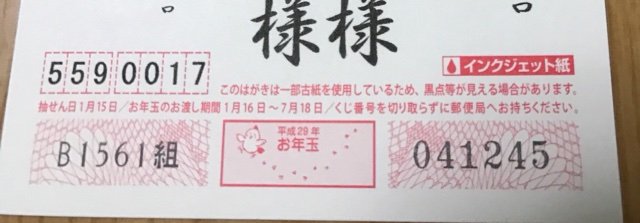 様様
インクジェット紙
5590017
このはがきは一部古紙を使用しているため、黒点等が見える場合があります。
抽せん日1月15日/お年玉のお渡し期間1月16日〜7月18日/くじ番号を切り取らずに郵便局へお持ちください。
B1561組
平成29年
お年玉
041245